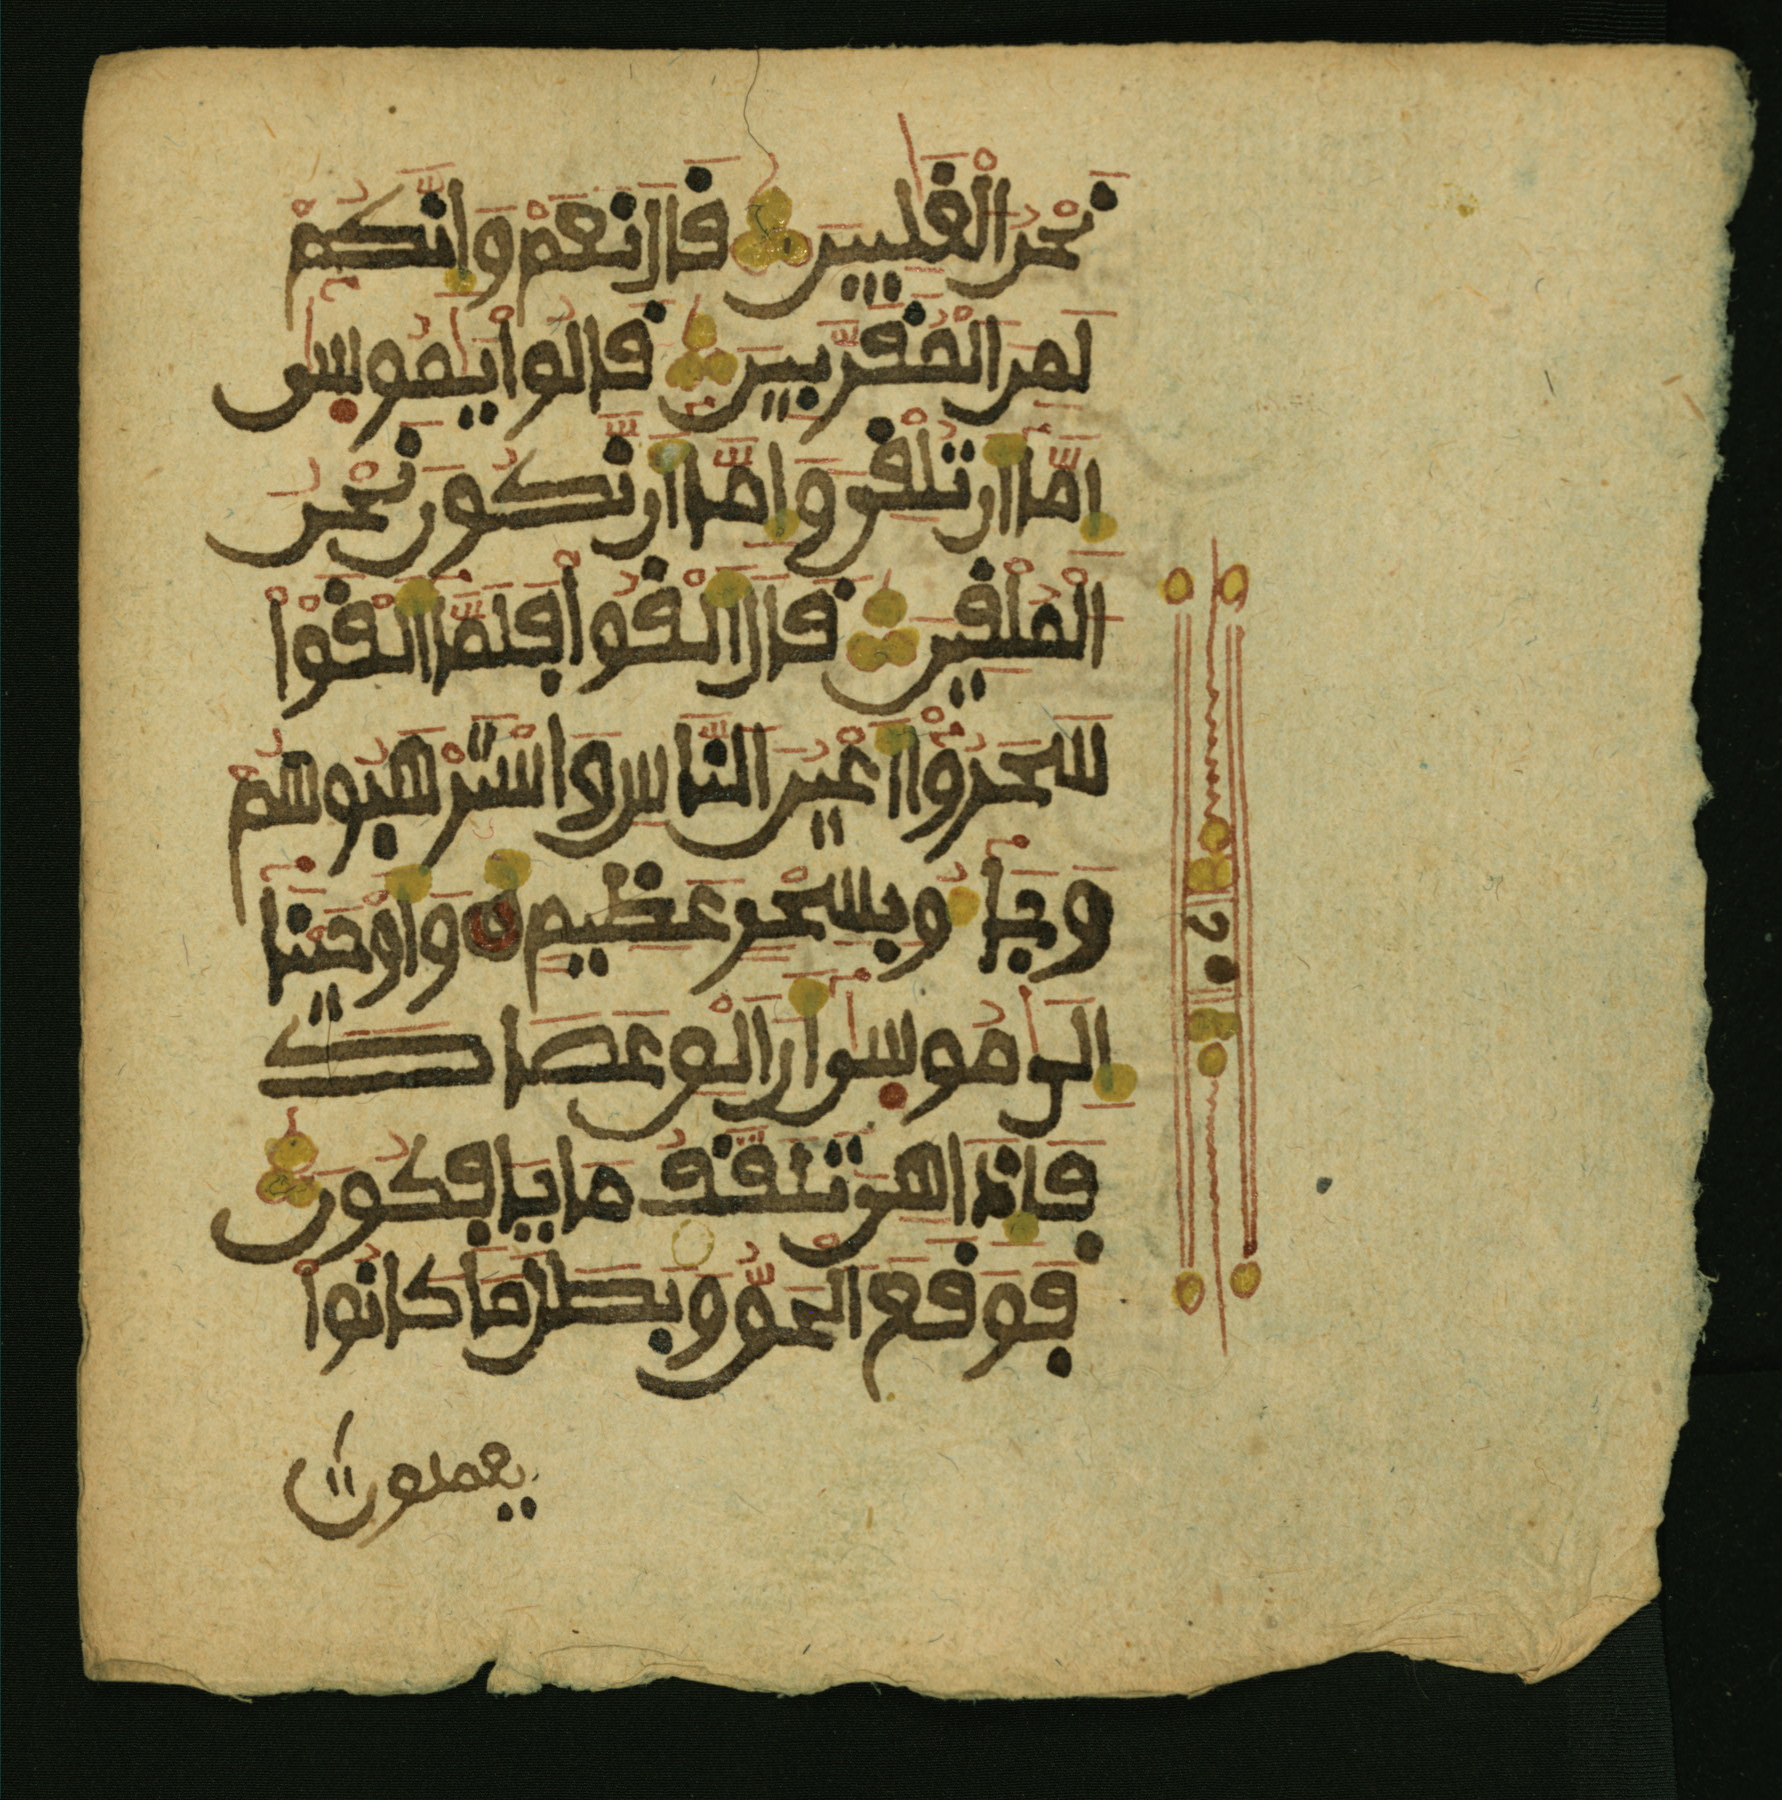 نَحْنُ الْغَٰلِبِينَ قَالَ نَعَمْ وَإِنَّكُمْ
لَمِنَ الْمُقَرَّبِينَ قَالُوا يَٰمُوسَىٰ
إِمَّا أَن تُلْقِيَ وَإِمَّا أَن نَّكُونَ نَحْنُ
الْمُلْقِينَ قَالَ أَلْقُوا فَلَمَّا أَلْقَوْا
سَحَرُوا أَعْيُنَ النَّاسِ وَاسْتَرْهَبُوهُمْ
وَجَاءُو بِسِحْرٍ عَظِيمٍ وَأَوْحَيْنَا
إِلَىٰ مُوسَىٰ أَنْ أَلْقِ عَصَاكَ
فَإِذَا هِيَ تَلَقَّفُ مَا يَأْفِكُونَ
فَوَقَعَ الْحَقُّ وَبَطَلَ مَا كَانُوا
يعملون